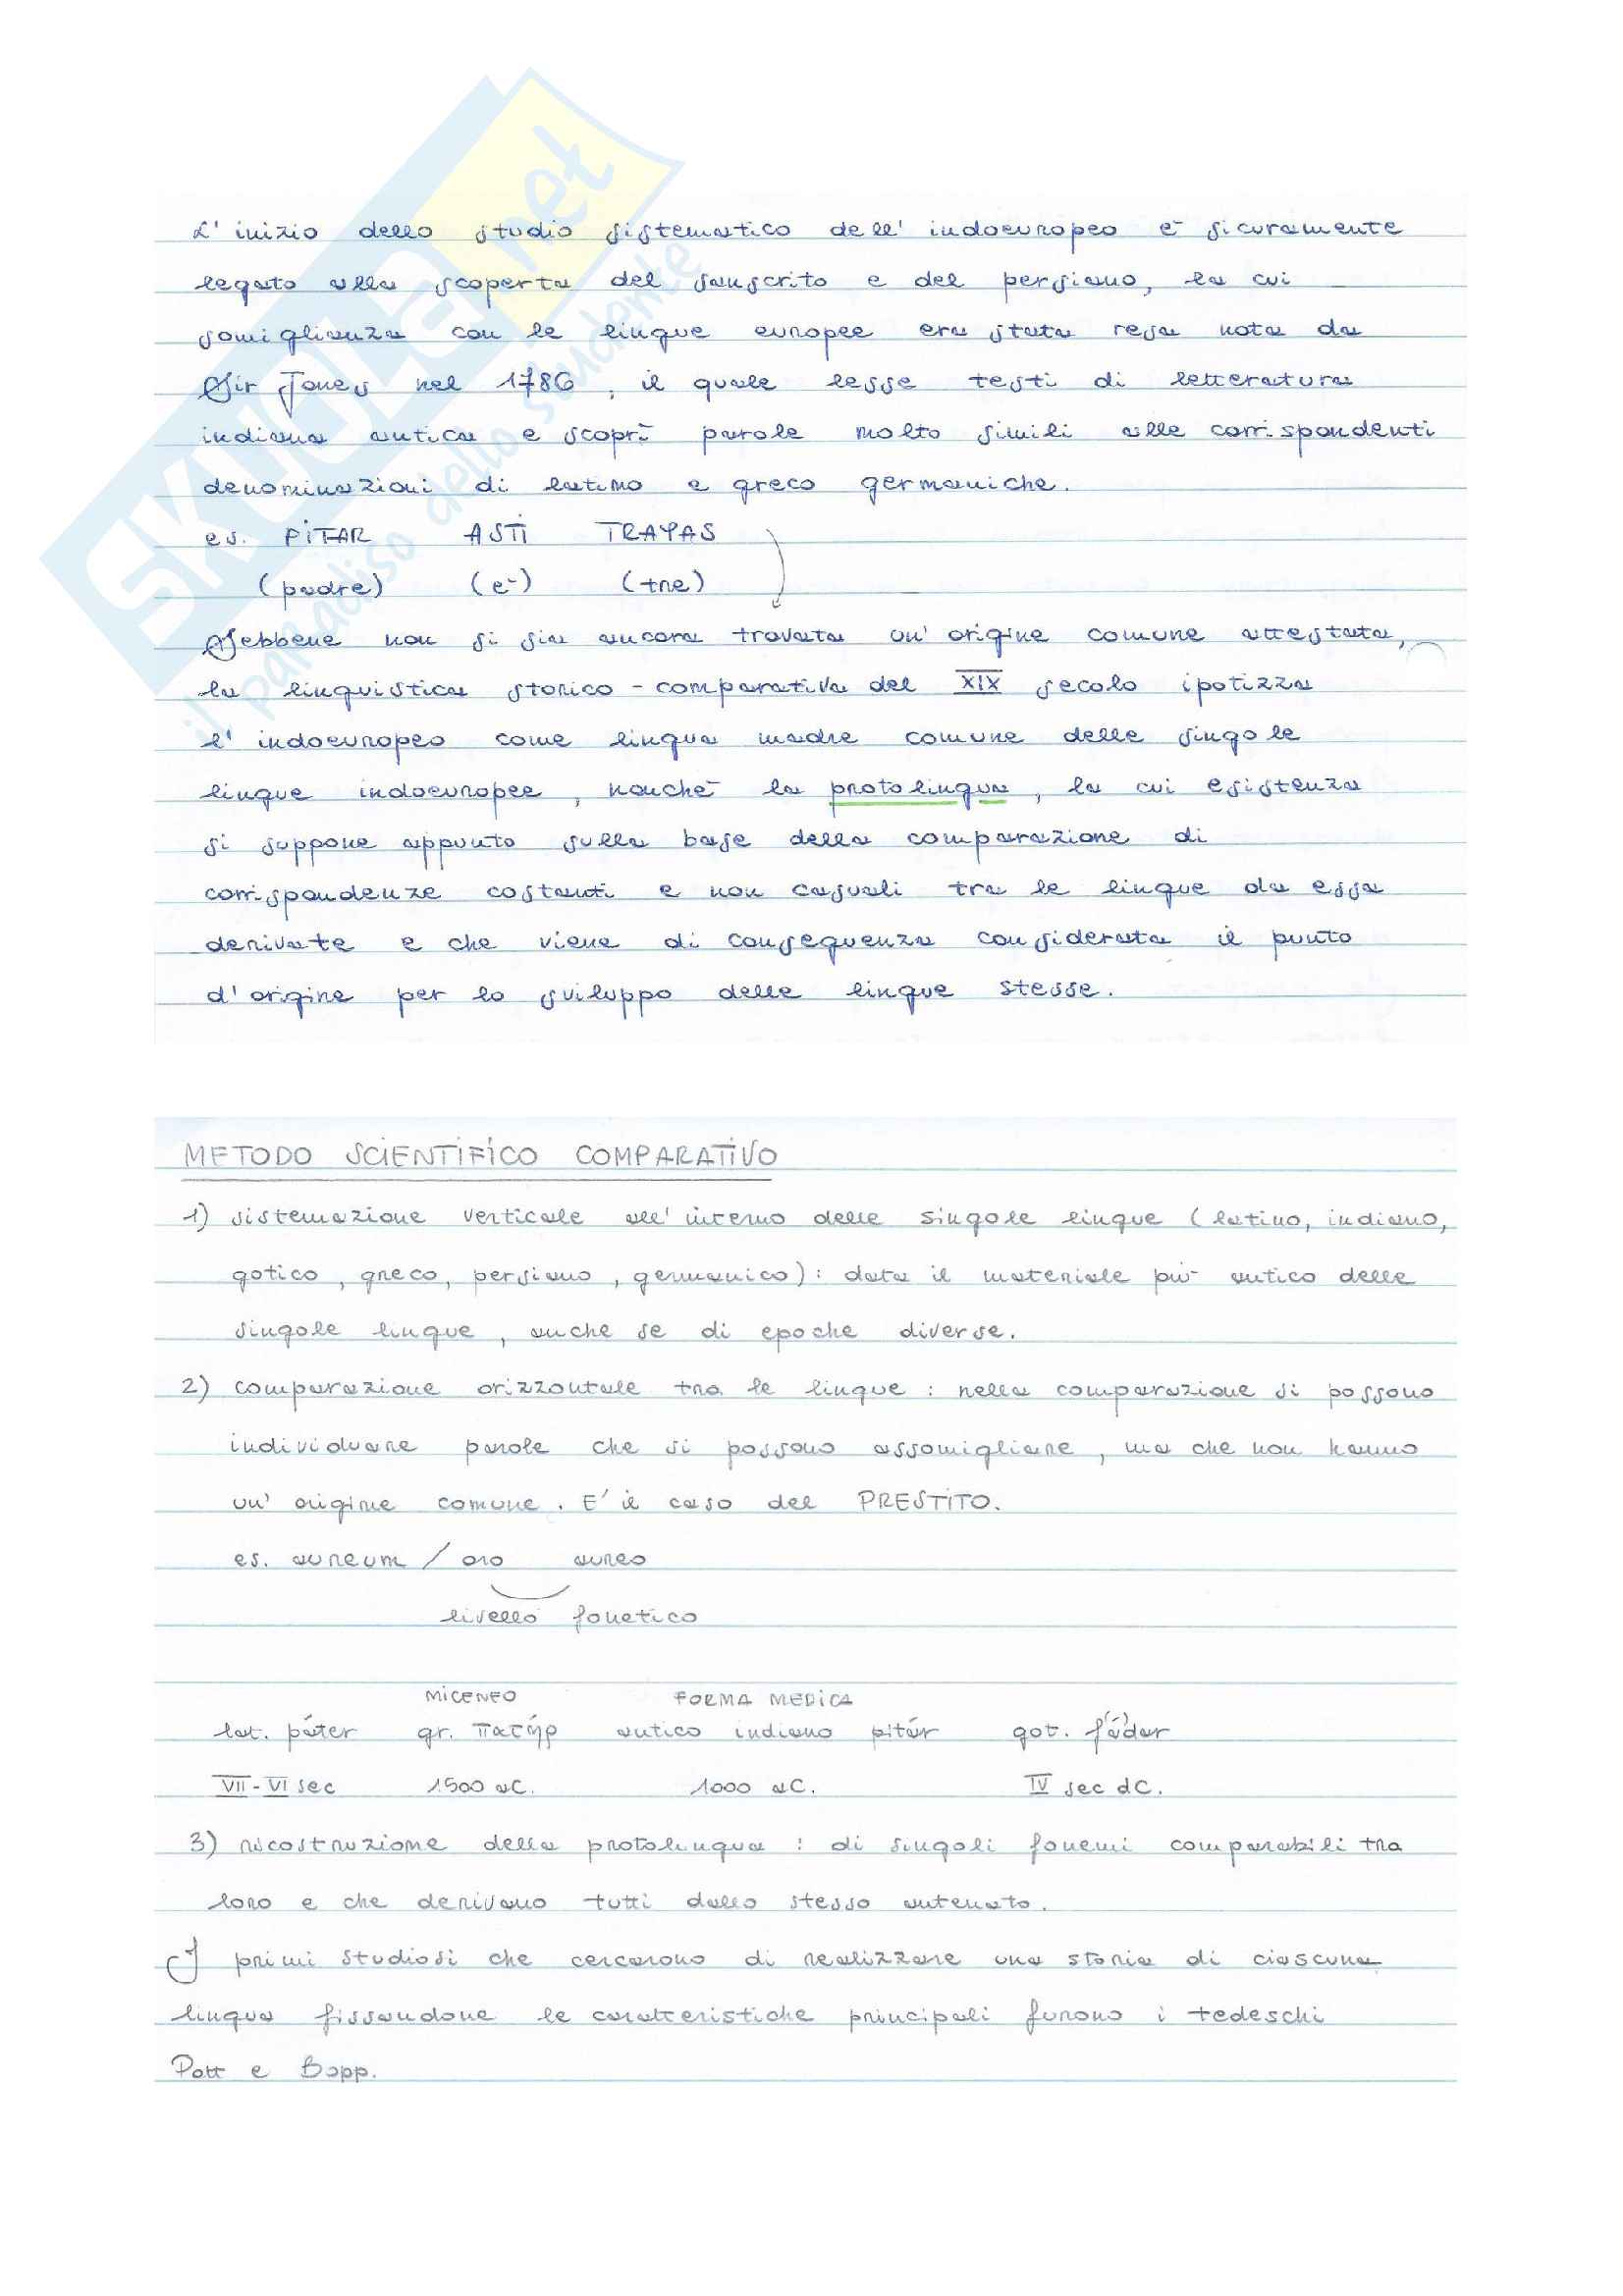 SKUOLA.net
il paradiso dello studente
L'inizio dello studio sistematico dell'indoeuropeo è sicuramente
legato alla scoperta del sanscrito e del persiano, la cui
somiglianza con le lingue europee era stata resa nota da
Sir Jones nel 1786, il quale lesse testi di letteratura
indiana antica e scoprì parole molto simili alle corrispondenti
denominazioni di latino e greco germaniche.
es. PITAR ASTI TRAYAS
(padre) (è) (tre)
Sebbene non si sia ancora trovata un'origine comune attestata,
la linguistica storico-comparativa del XIX secolo ipotizza
l'indoeuropeo come lingua madre comune delle singole
lingue indoeuropee, nonchè la protolingua, la cui esistenza
si suppone appunto sulla base della comparazione di
corrispondenze costanti e non casuali tra le lingue da essa
derivate e che viene di conseguenza considerata il punto
d'origine per lo sviluppo delle lingue stesse.
METODO SCIENTIFICO COMPARATIVO
1) sistemazione verticale all'interno delle singole lingue (latino, indiano,
gotico, greco, persiano, germanico): data il materiale più antico delle
singole lingue, anche se di epoche diverse.
2) comparazione orizzontale tra le lingue: nella comparazione si possono
individuare parole che si possono assomigliare, ma che non hanno
un'origine comune. E' il caso del PRESTITO.
es. aureum / oro aureo
livello fonetico
MICENEO FORMA MEDICA
lat. páter gr. πατήρ antico indiano pitár got. fádar
VII-VI sec 1500 aC. 1000 aC. IV sec dC.
3) ricostruzione della protolingua: di singoli fonemi comparabili tra
loro e che derivano tutti dallo stesso antenato.
I primi studiosi che cercarono di realizzare una storia di ciascuna
lingua fissandone le caratteristiche principali furono i tedeschi
Pott e Bopp.